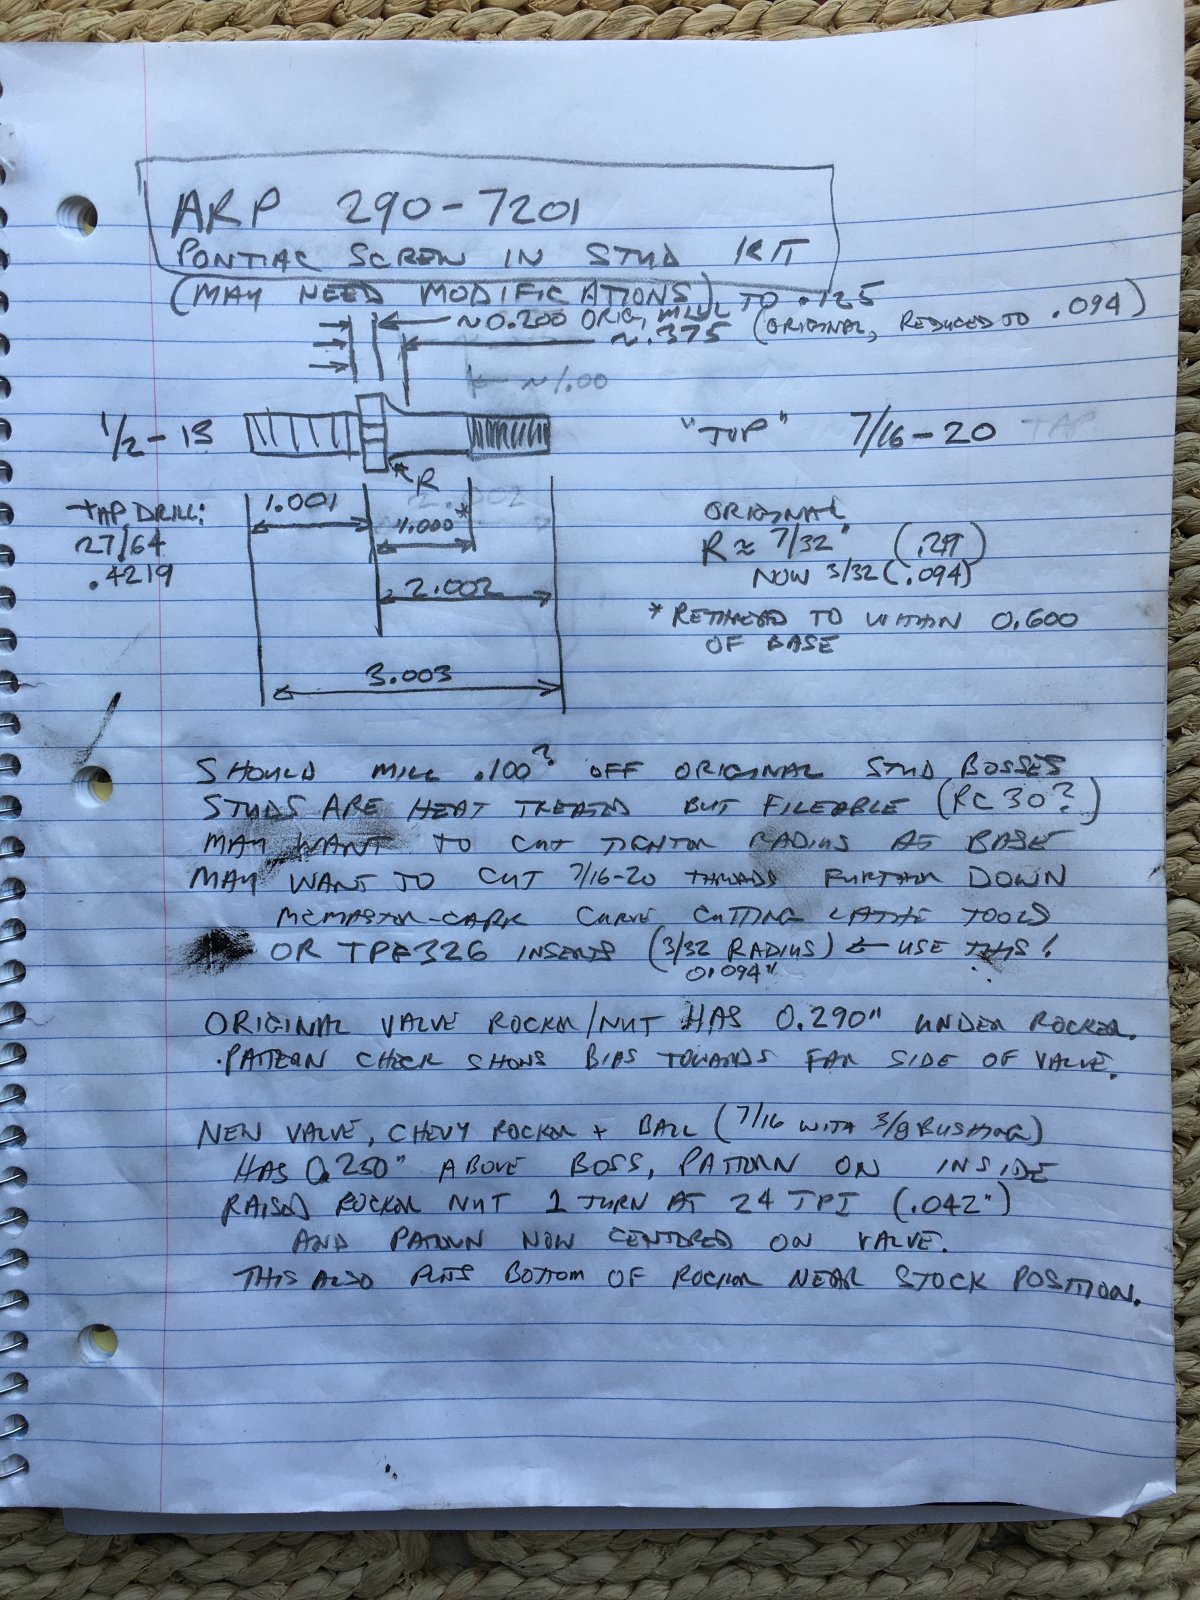 ARP 290-7201
PONTIAC SCREW IN STUD KIT
(MAY NEED MODIFICATIONS)
~0.200 ORIG, MILL TO .125
~.375 (ORIGINAL, REDUCED TO .094)
~1.00
1/2-13
"TOP" 7/16-20 TAP
R
TAP DRILL:
27/64
.4219
1.001
2.002
1.000*
2.002
3.003
ORIGINAL
R ≈ 7/32"
NOW 3/32 (.094)
* RETHREAD TO WITHIN 0.600
OF BASE
SHOULD MILL .100? OFF ORIGINAL STUD BOSSES
STUDS ARE HEAT TREATED BUT FILEABLE (RC 30?)
MAY WANT TO CUT TIGHTER RADIUS AT BASE
MAY WANT TO CUT 7/16-20 THREADS FURTHER DOWN
MCMASTER-CARR CURVE CUTTING LATHE TOOLS
OR TPE326 INSERTS (3/32 RADIUS) ← USE THIS!
0.094"
ORIGINAL VALVE ROCKER/NUT HAS 0.290" UNDER ROCKER.
·PATTERN CHECK SHOWS BIAS TOWARDS FAR SIDE OF VALVE.
NEW VALVE, CHEVY ROCKER + BALL (7/16 WITH 3/8 BUSHING)
HAS 0.250" ABOVE BOSS, PATTERN ON INSIDE
RAISED ROCKER NUT 1 TURN AT 24 TPI (.042")
AND PATTERN NOW CENTERED ON VALVE.
THIS ALSO PUTS BOTTOM OF ROCKER NEAR STOCK POSITION.